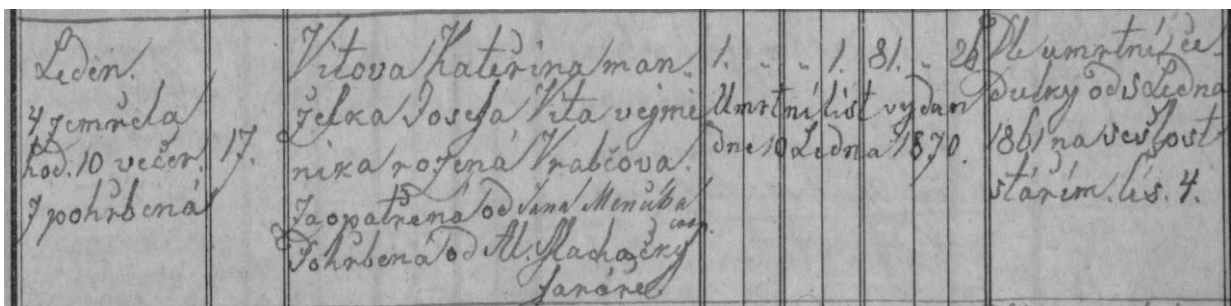 Leden.
4 zemřela
hod. 10 večer.
7 pohřbená
17.
Vitova Kateřina man„
želka Josefa Vita vejmi„
nika rožená Vrabčova.
Zaopatřena od Jana Menšíka
coop.
Pohřbena od Al. Machačky
faráře
1. „ „ 1. 81. „ 26
Umrtní list vydan
dne 10 Ledna 1870.
Dle umrtní ce„
dulky od 5 Ledna
1861 na sešlost
stářím. lis. 4.